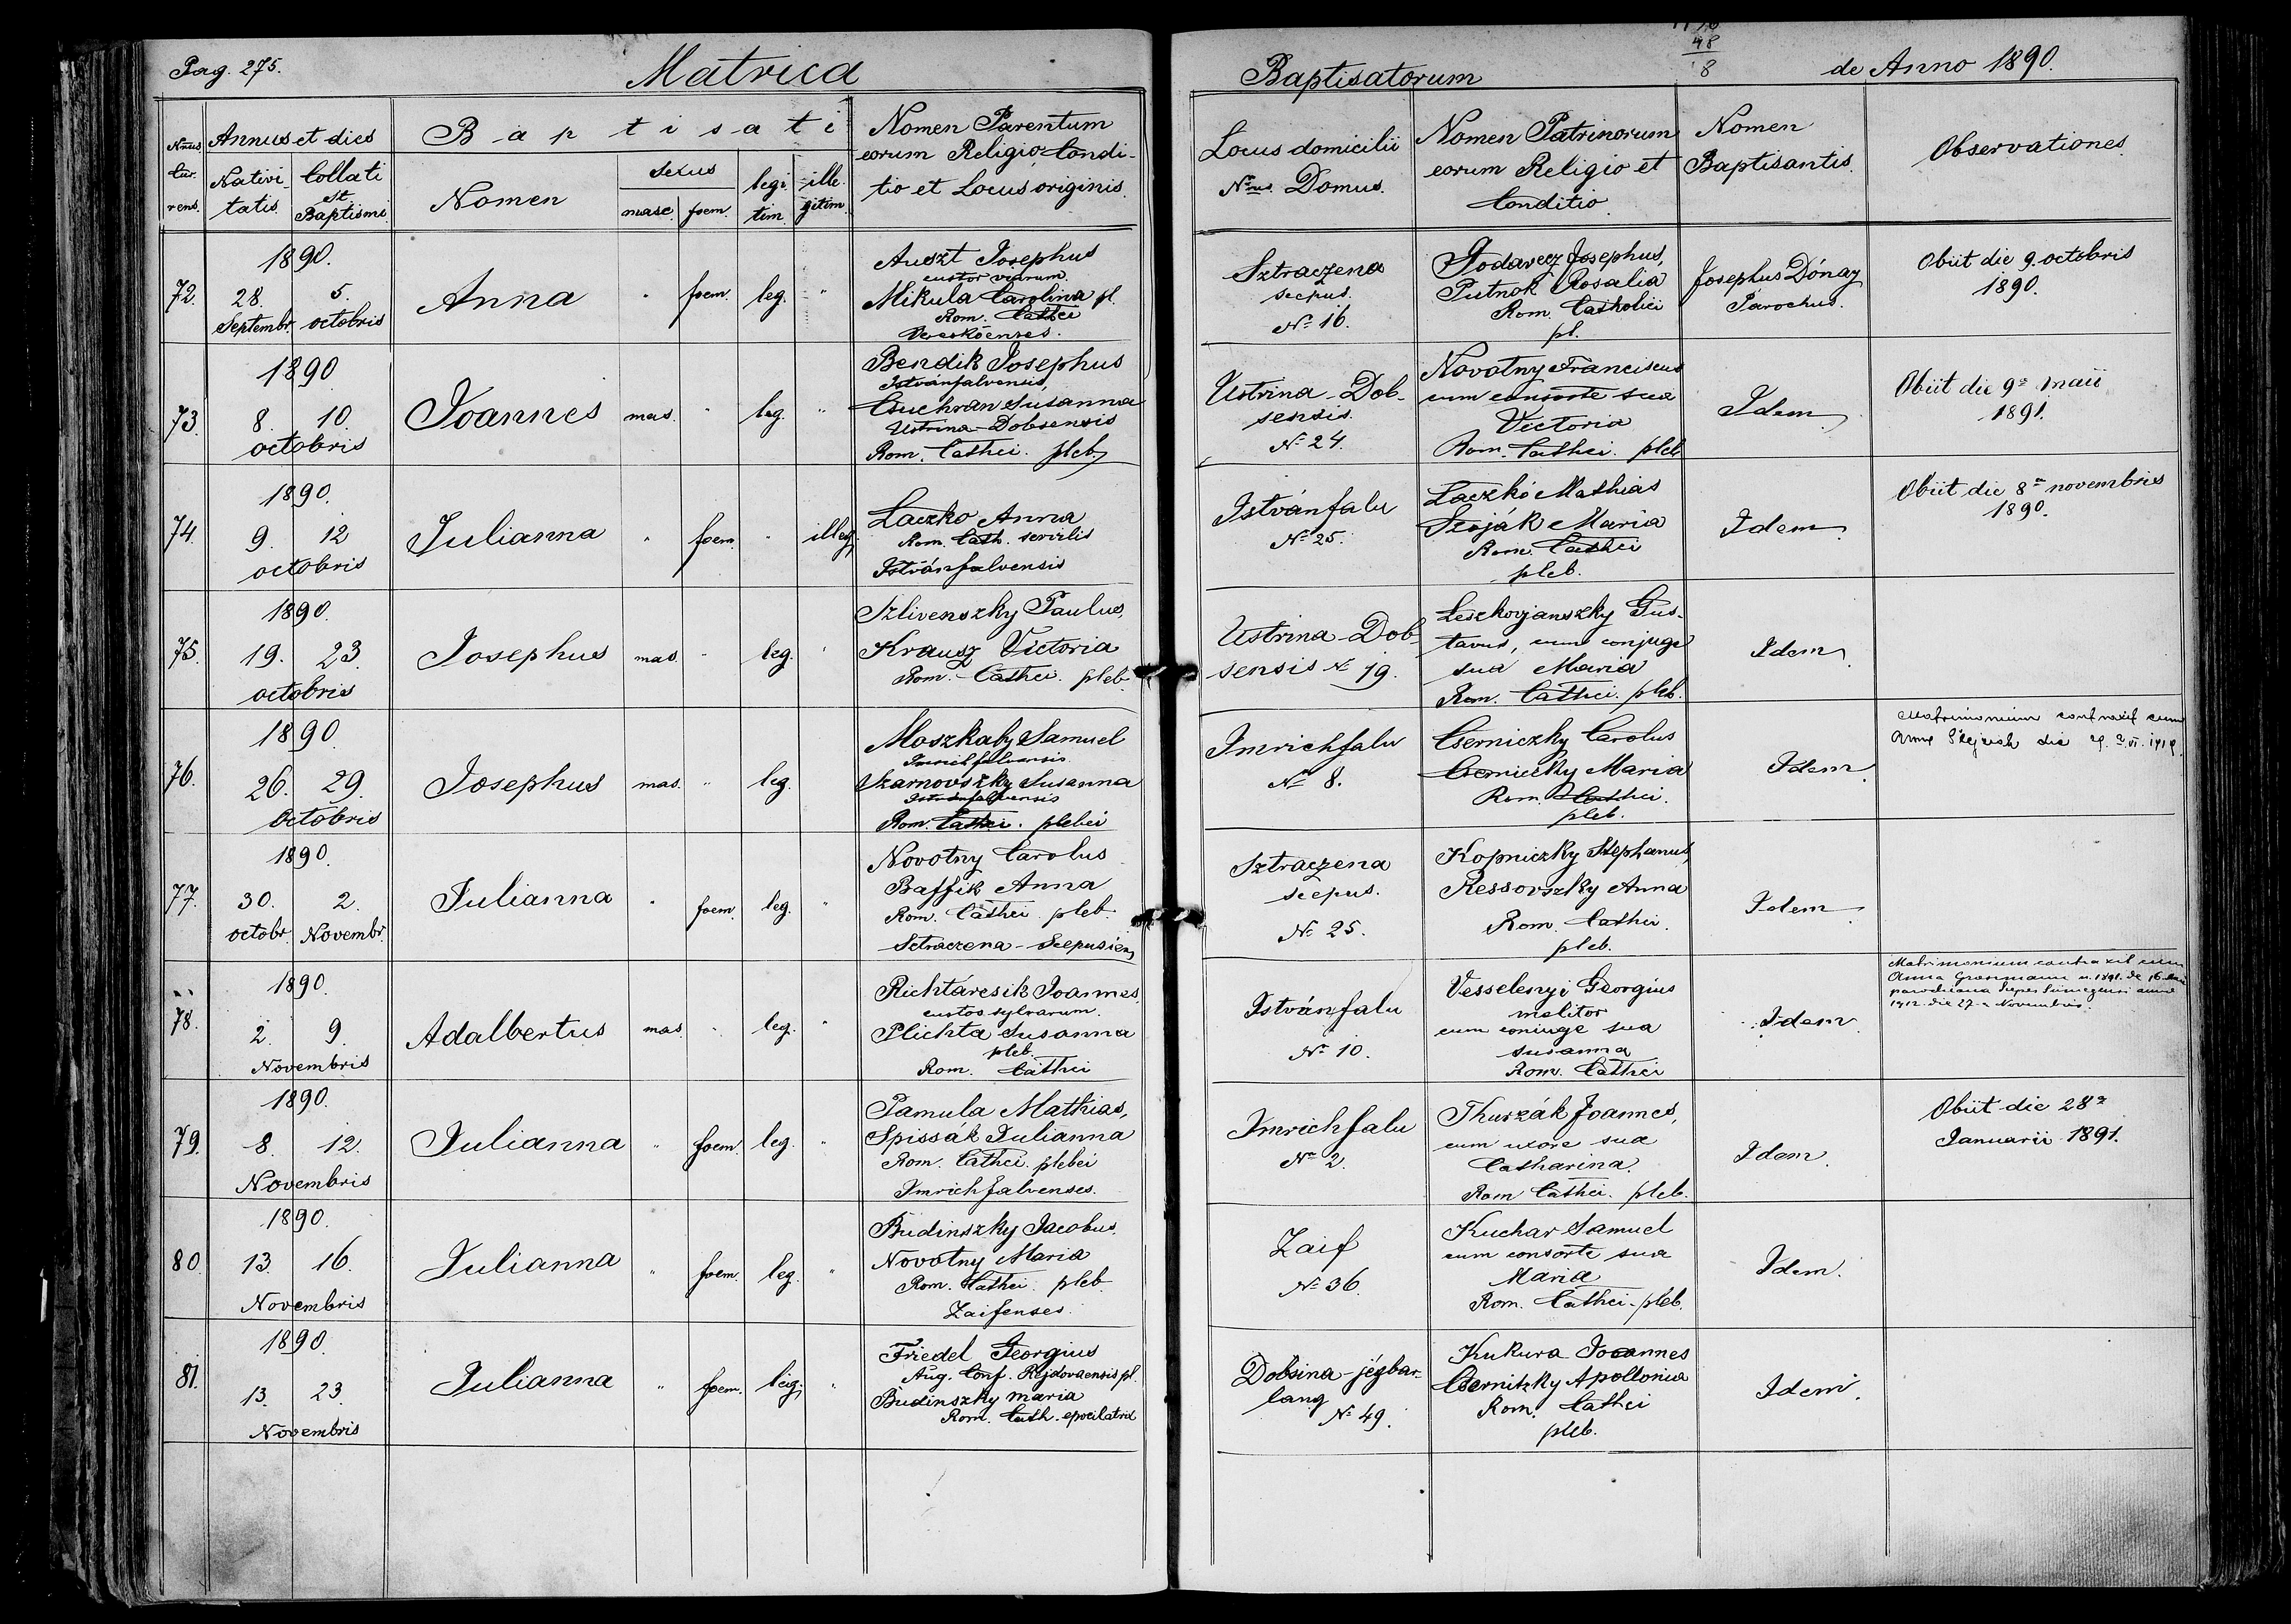 Pag. 275.
Matrica
Baptisatorum
48
8
de Anno 1890.
Nrus Cur- rens.
Annus et dies
Nativi- tatis
Collati St. Baptismi
Baptisati
Nomen
Sexus
masc. foem.
legi- tim.
ille- gitim.
Nomen Parentum
eorum Religio Condi-
tio et Locus originis.
Locus domicilii
Nrus Domus.
Nomen Patrinorum
eorum Religio et
Conditio
Nomen
Baptisantis.
Observationes.
72.
1890.
28. 5.
Septembr. octobris
Anna
" foem. leg. "
Auszt Josephus
custor viarum
Mikula Carolina pl.
Rom. Cathci
Vereskőenses.
Sztraczena
scepus.
No 16.
Godavecz Josephus,
Putnok Rosalia
Rom. Catholici
pl.
Josephus Dónay
Parochus.
Obiit die 9. octobris
1890.
73.
1890
8. 10.
octobris
Joannes
mas. " leg. "
Bendik Josephus
Istvánfalvensis,
Csuchran Susanna
Ustrina-Dobsensis
Rom. Cathci. pleb.
Ustrina-Dob-
sensis.
No 24.
Novotny Franciscus
cum consorte sua
Victoria
Rom. Cathci. pleb
Idem
Obiit die 9a maii
1891.
74.
1890.
9. 12
octobris
Julianna
" foem. " illeg.
Laczko Anna
Rom. Cath. servilis
Istvánfalvensis
Istvánfalu
No 25.
Laczkó Mathias
Szoják Maria
Rom. Cathci
pleb.
Idem.
Obiit die 8a novembris
1890.
75.
1890.
19. 23.
octobris
Josephus
mas. " leg. "
Szlivenszky Paulus,
Krausz Victoria
Rom. Cathci. pleb.
Ustrina-Dob-
sensis No 19.
Leszkovjanszky Gus-
tavus, cum conjuge
sua Maria
Rom. Cathci. pleb.
Idem
76.
1890.
26. 29.
Octobris
Josephus
mas. " leg.
Moszkaly Samuel
Imrichfalvensis
Szarnovszky Susanna
Istvánfalvensis
Rom. Cathci. plebei
Imrichfalu
No 8.
Cserniczky Carolus
Cserniczky Maria
Rom. Cathci.
pleb.
Idem.
Matrimonium contraxit cum
Anna die
77.
1890.
30. 2.
octobr. Novembr.
Julianna
" foem. leg. "
Novotny Carolus
Baffik Anna
Rom. Cathci pleb.
Sztraczena-Scepusien
Sztraczena
scepus.
No 25.
Kopniczky Stephanus,
Ressovszky Anna
Rom. Cathci.
pleb.
Idem
78.
1890.
2. 9.
Novembris
Adalbertus
mas. " leg. "
Richtárcsik Joannes,
custos sylvarum.
Plichta Susanna
pleb.
Rom. Cathci
Istvánfalu
No 10.
Vesselenyi Georgius
molitor
cum coniuge sua
Susanna
Rom. Cathci
Idem.
Matrimonium contraxit cum
Anna Grosmann n. 1891. de 16.
1912. die 27-a Novembris.
79.
1890.
8. 12.
Novembris
Julianna
" foem. leg. "
Pamula Mathias,
Spissák Julianna
Rom. Cathci. plebei
Imrichfalvenses.
Imrichfalu
No 2.
Thurzák Joannes,
cum uxore sua
Catharina.
Rom Cathci. pleb.
Idem.
Obiit die 28a
Januarii 1891.
80.
1890.
13. 16.
Novembris
Julianna
" foem. leg. "
Budinszky Jacobus.
Novotny Maria
Rom. Cathci. pleb
Zaifenses.
Zaif
No 36.
Kuchar Samuel
cum consorte sua
Maria
Rom. Cathci. pleb.
Idem.
81.
1890.
13. 23.
Novembris
Julianna
" foem. leg. "
Friedel Georgius
Aug. Conf. Rejdovaensis pl.
Budinszky maria
Rom. Cath.
Dobsina-jégbar-
lang
No 49.
Kukura Joannes
Csernitzky Apollonia
Rom. Cathci
pleb.
Idem.